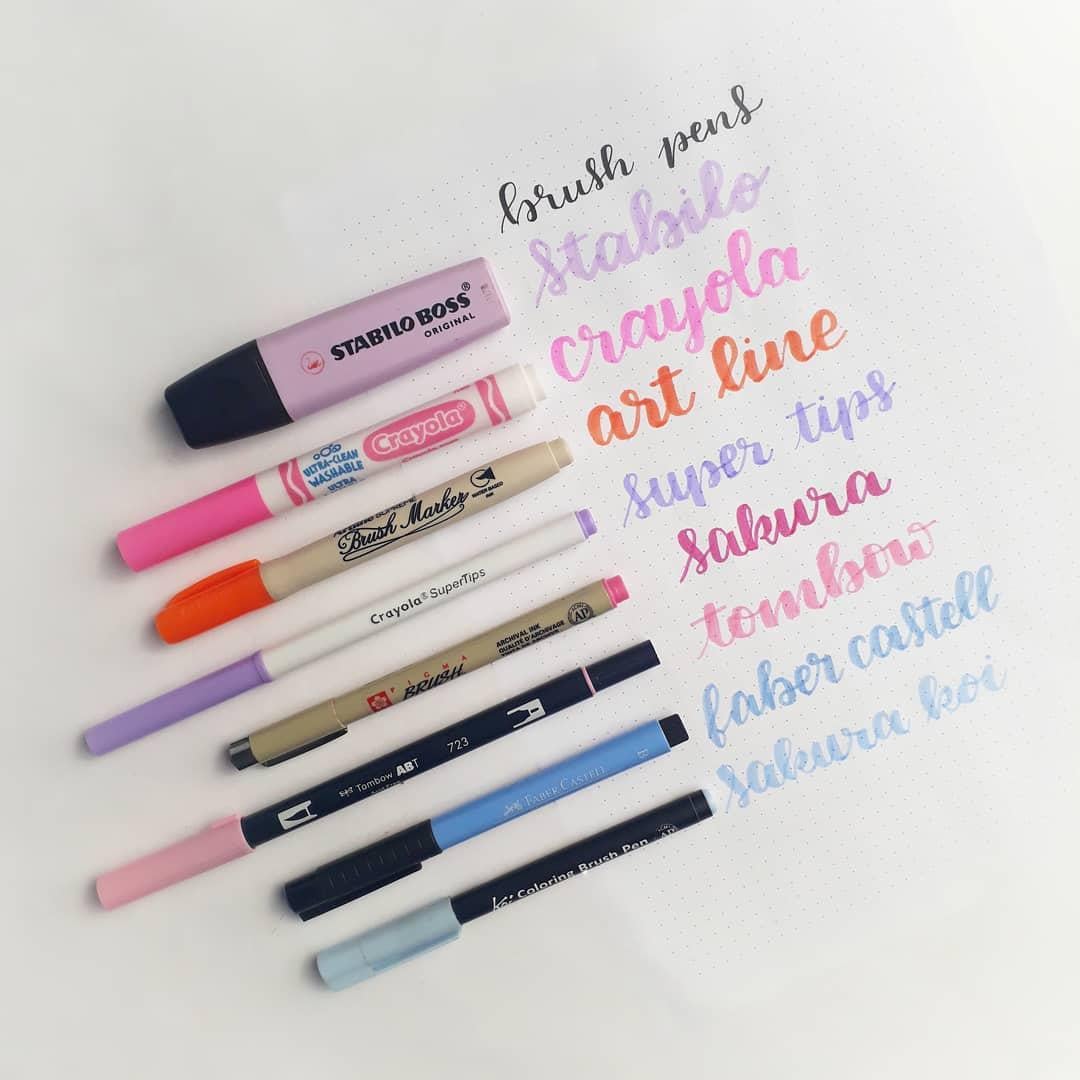 brush pens
stabilo
crayola
art line
super tips
sakura
tombow
faber castell
sakura koi
STABILO BOSS®
ORIGINAL
Crayola®
ULTRA-CLEAN
WASHABLE
ULTRA
Artline SUPREME
Brush Marker
WATER BASED
Crayola® SuperTips
ARCHIVAL INK
QUALITÉ D'ARCHIVAGE
PIGMA
BRUSH
AP
723
Tombow ABT
B
FABER CASTELL
Koi Coloring Brush Pen
AP